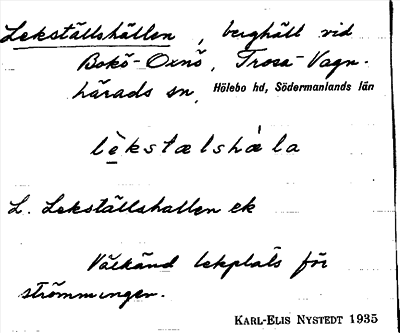 Lekställshällen, berghäll vid
Bokö-Oxnö, Trosa-Vagn-
härads sn, Hölebo hd, Södermanlands län
lèkstælshàla
L. Lekställshallen ek
Välkänd lekplats för
strömmingen.
KARL-ELIS NYSTEDT 1935